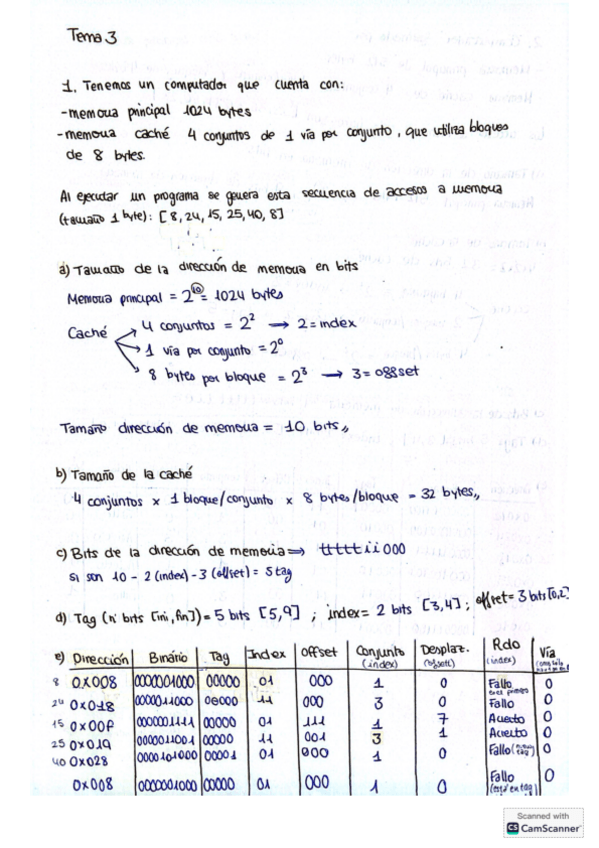 Tema 3
1. Tenemos un computador que cuenta con:
-memoria principal 1024 bytes
-memoria caché 4 conjuntos de 1 vía por conjunto, que utiliza bloques
de 8 bytes.
Al ejecutar un programa se genera esta secuencia de accesos a memoria
(tamaño 1 byte): [8, 24, 15, 25, 40, 8]
a) Tamaño de la dirección de memoria en bits
Memoria principal = 2^10 = 1024 bytes
Caché
4 conjuntos = 2² → 2 = index
1 vía por conjunto = 2⁰
8 bytes por bloque = 2³ → 3 = offset
Tamaño dirección de memoria = 10 bits
b) Tamaño de la caché
4 conjuntos x 1 bloque/conjunto x 8 bytes/bloque = 32 bytes
c) Bits de la dirección de memoria ⇒ tttttii000
si son 10 - 2 (index) - 3 (offset) = 5 tag
d) Tag (nº bits [ini, fin]) = 5 bits [5,9] ; index = 2 bits [3,4] ; offset = 3 bits [0,2]
e) Dirección Binário Tag Index Offset Conjunto (index) Desplaz. (offset) Rdo (index) Vía
8 0x008 0000001000 00000 01 000 1 0 Fallo 0
24 0x018 0000011000 00000 11 000 3 0 Fallo 0
15 0x00F 0000001111 00000 01 111 1 7 Acierto 0
25 0x019 0000011001 00000 11 001 3 1 Acierto 0
40 0x028 0000101000 00001 01 000 1 0 Fallo 0
0x008 0000001000 00000 01 000 1 0 Fallo 0
Scanned with
CS CamScanner